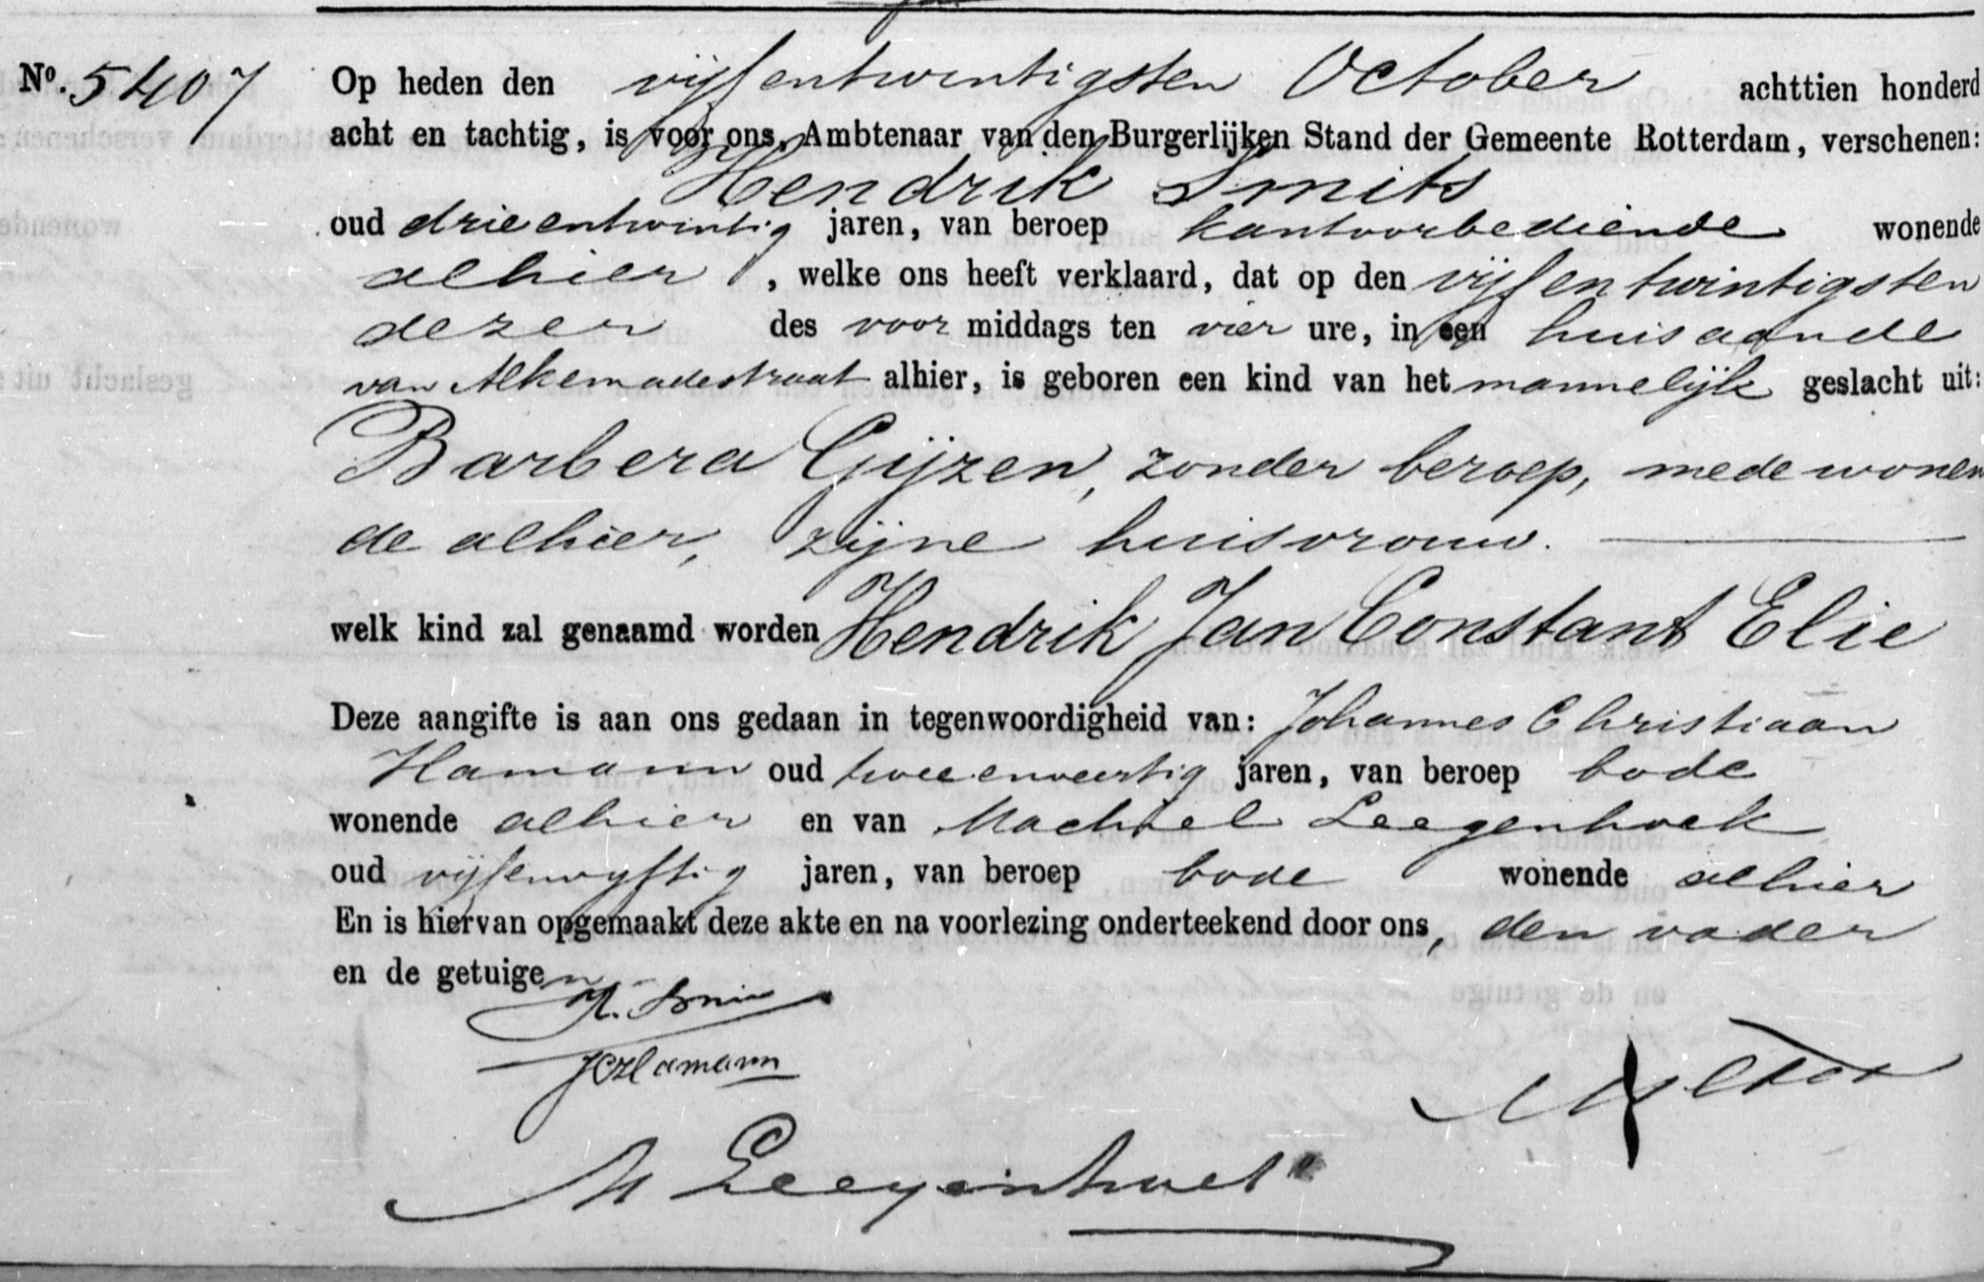 No. 5407 Op heden den vijfentwintigsten October achttien honderd
acht en tachtig, is voor ons, Ambtenaar van den Burgerlijken Stand der Gemeente Rotterdam, verschenen:
Hendrik Smits
oud drieentwintig jaren, van beroep kantoorbediende wonende
alhier, welke ons heeft verklaard, dat op den vijfentwintigsten
dezer des voor middags ten vier ure, in een huis aan de
van Alkemadestraat alhier, is geboren een kind van het mannelijk geslacht uit:
Barbera Gijzen, zonder beroep, mede wonen
de alhier, zijne huisvrouw.
welk kind zal genaamd worden Hendrik Jan Constant Elie
Deze aangifte is aan ons gedaan in tegenwoordigheid van: Johannes Christiaan
Hamann oud tweeenveertig jaren, van beroep bode
wonende alhier en van Machiel Leegenhoek
oud vijfenvyftig jaren, van beroep bode wonende alhier
En is hiervan opgemaakt deze akte en na voorlezing onderteekend door ons, den vader
en de getuigen
H. Smits
JCHamann
M Leegenhoek